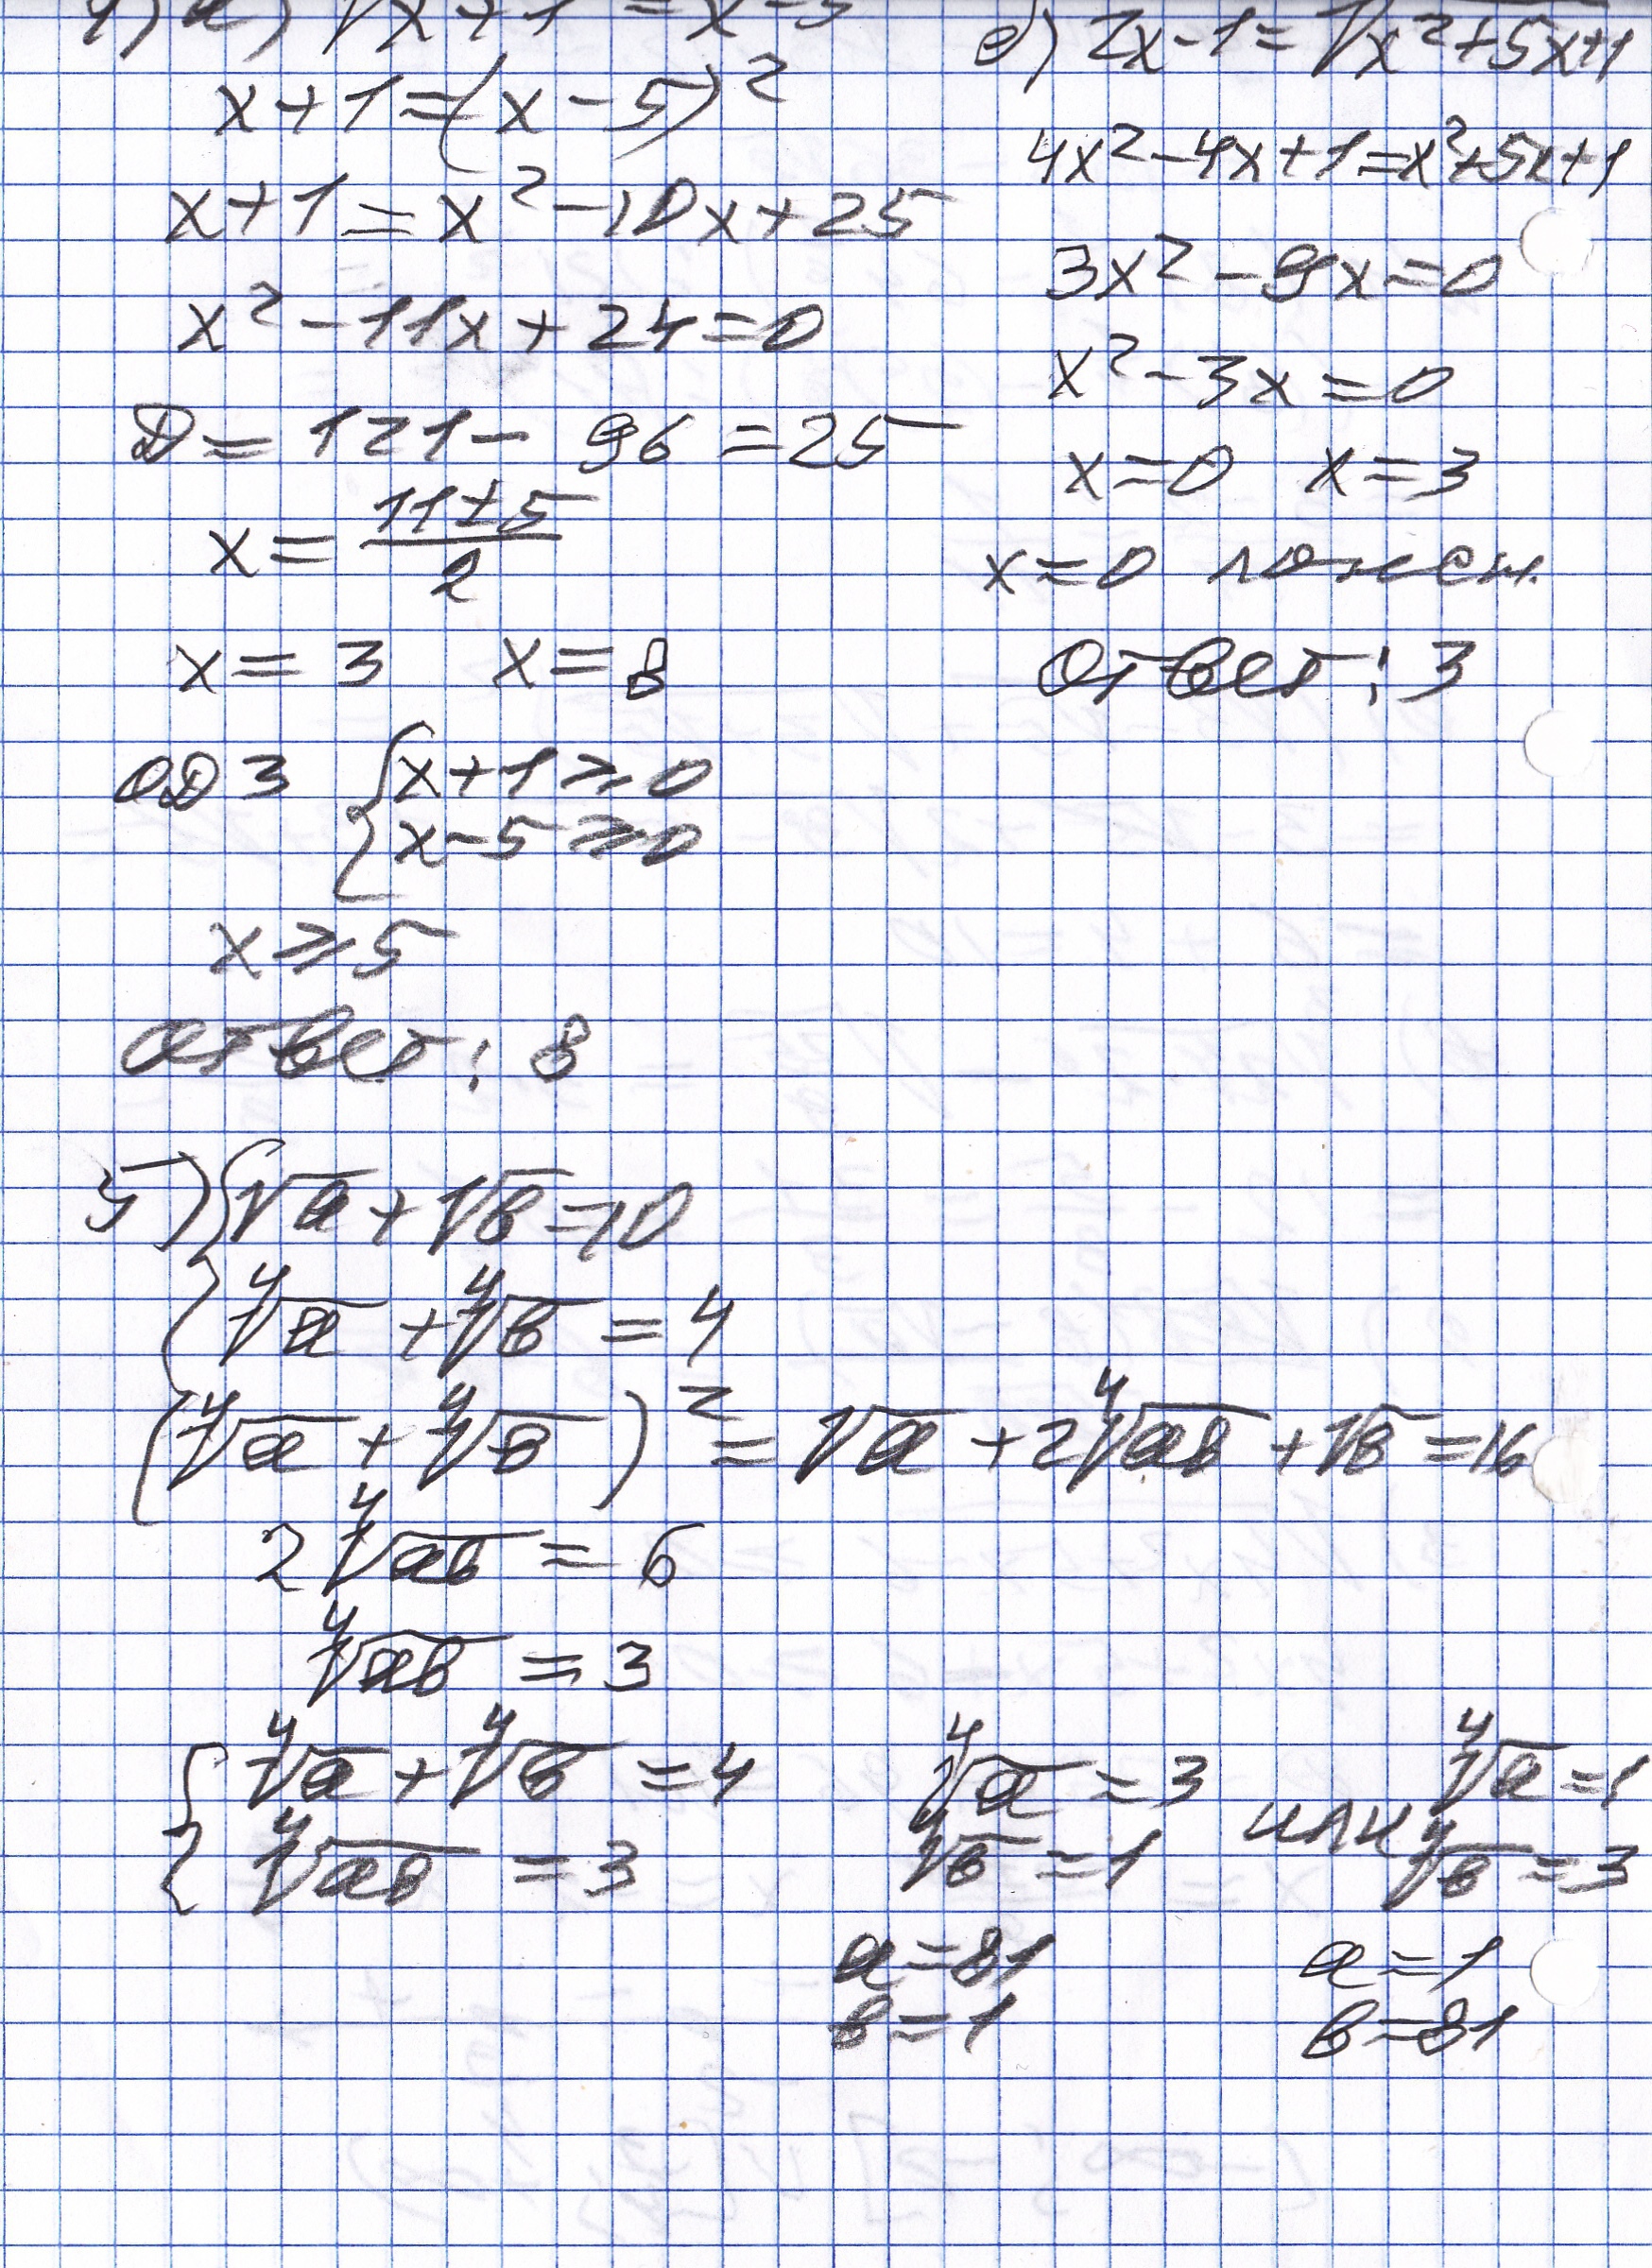 4) а) √x+1 = x-5
x+1=(x-5)²
x+1=x²-10x+25
x²-11x+24=0
D=121-96=25
x=(11±5)/2
x=3 x=8
ОДЗ {x+1≥0
{x-5≥0
x≥5
Ответ: 8
2x-1=√x²+5x+1
4x²-4x+1=x²+5x+1
3x²-9x=0
x²-3x=0
x=0 x=3
x=0 ложен.
Ответ: 3
5) {√a+√b=10
{⁴√a+⁴√b=4
(⁴√a+⁴√b)²=√a+2⁴√ab+√b=16
2⁴√ab=6
⁴√ab=3
{⁴√a+⁴√b=4
{⁴√ab=3
⁴√a=3 или ⁴√a=1
⁴√b=1 ⁴√b=3
a=81 a=1
b=1 b=81